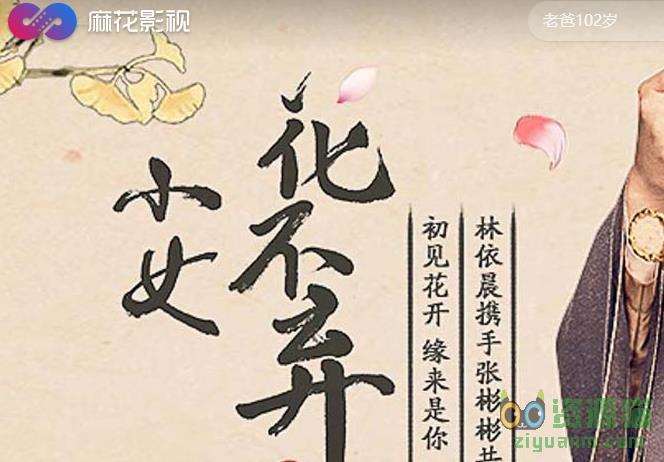 麻花影视
老爸102岁
小女
花不弃
林依晨携手张彬彬共
初见花开 缘来是你
资源猫
ziyuanm.com